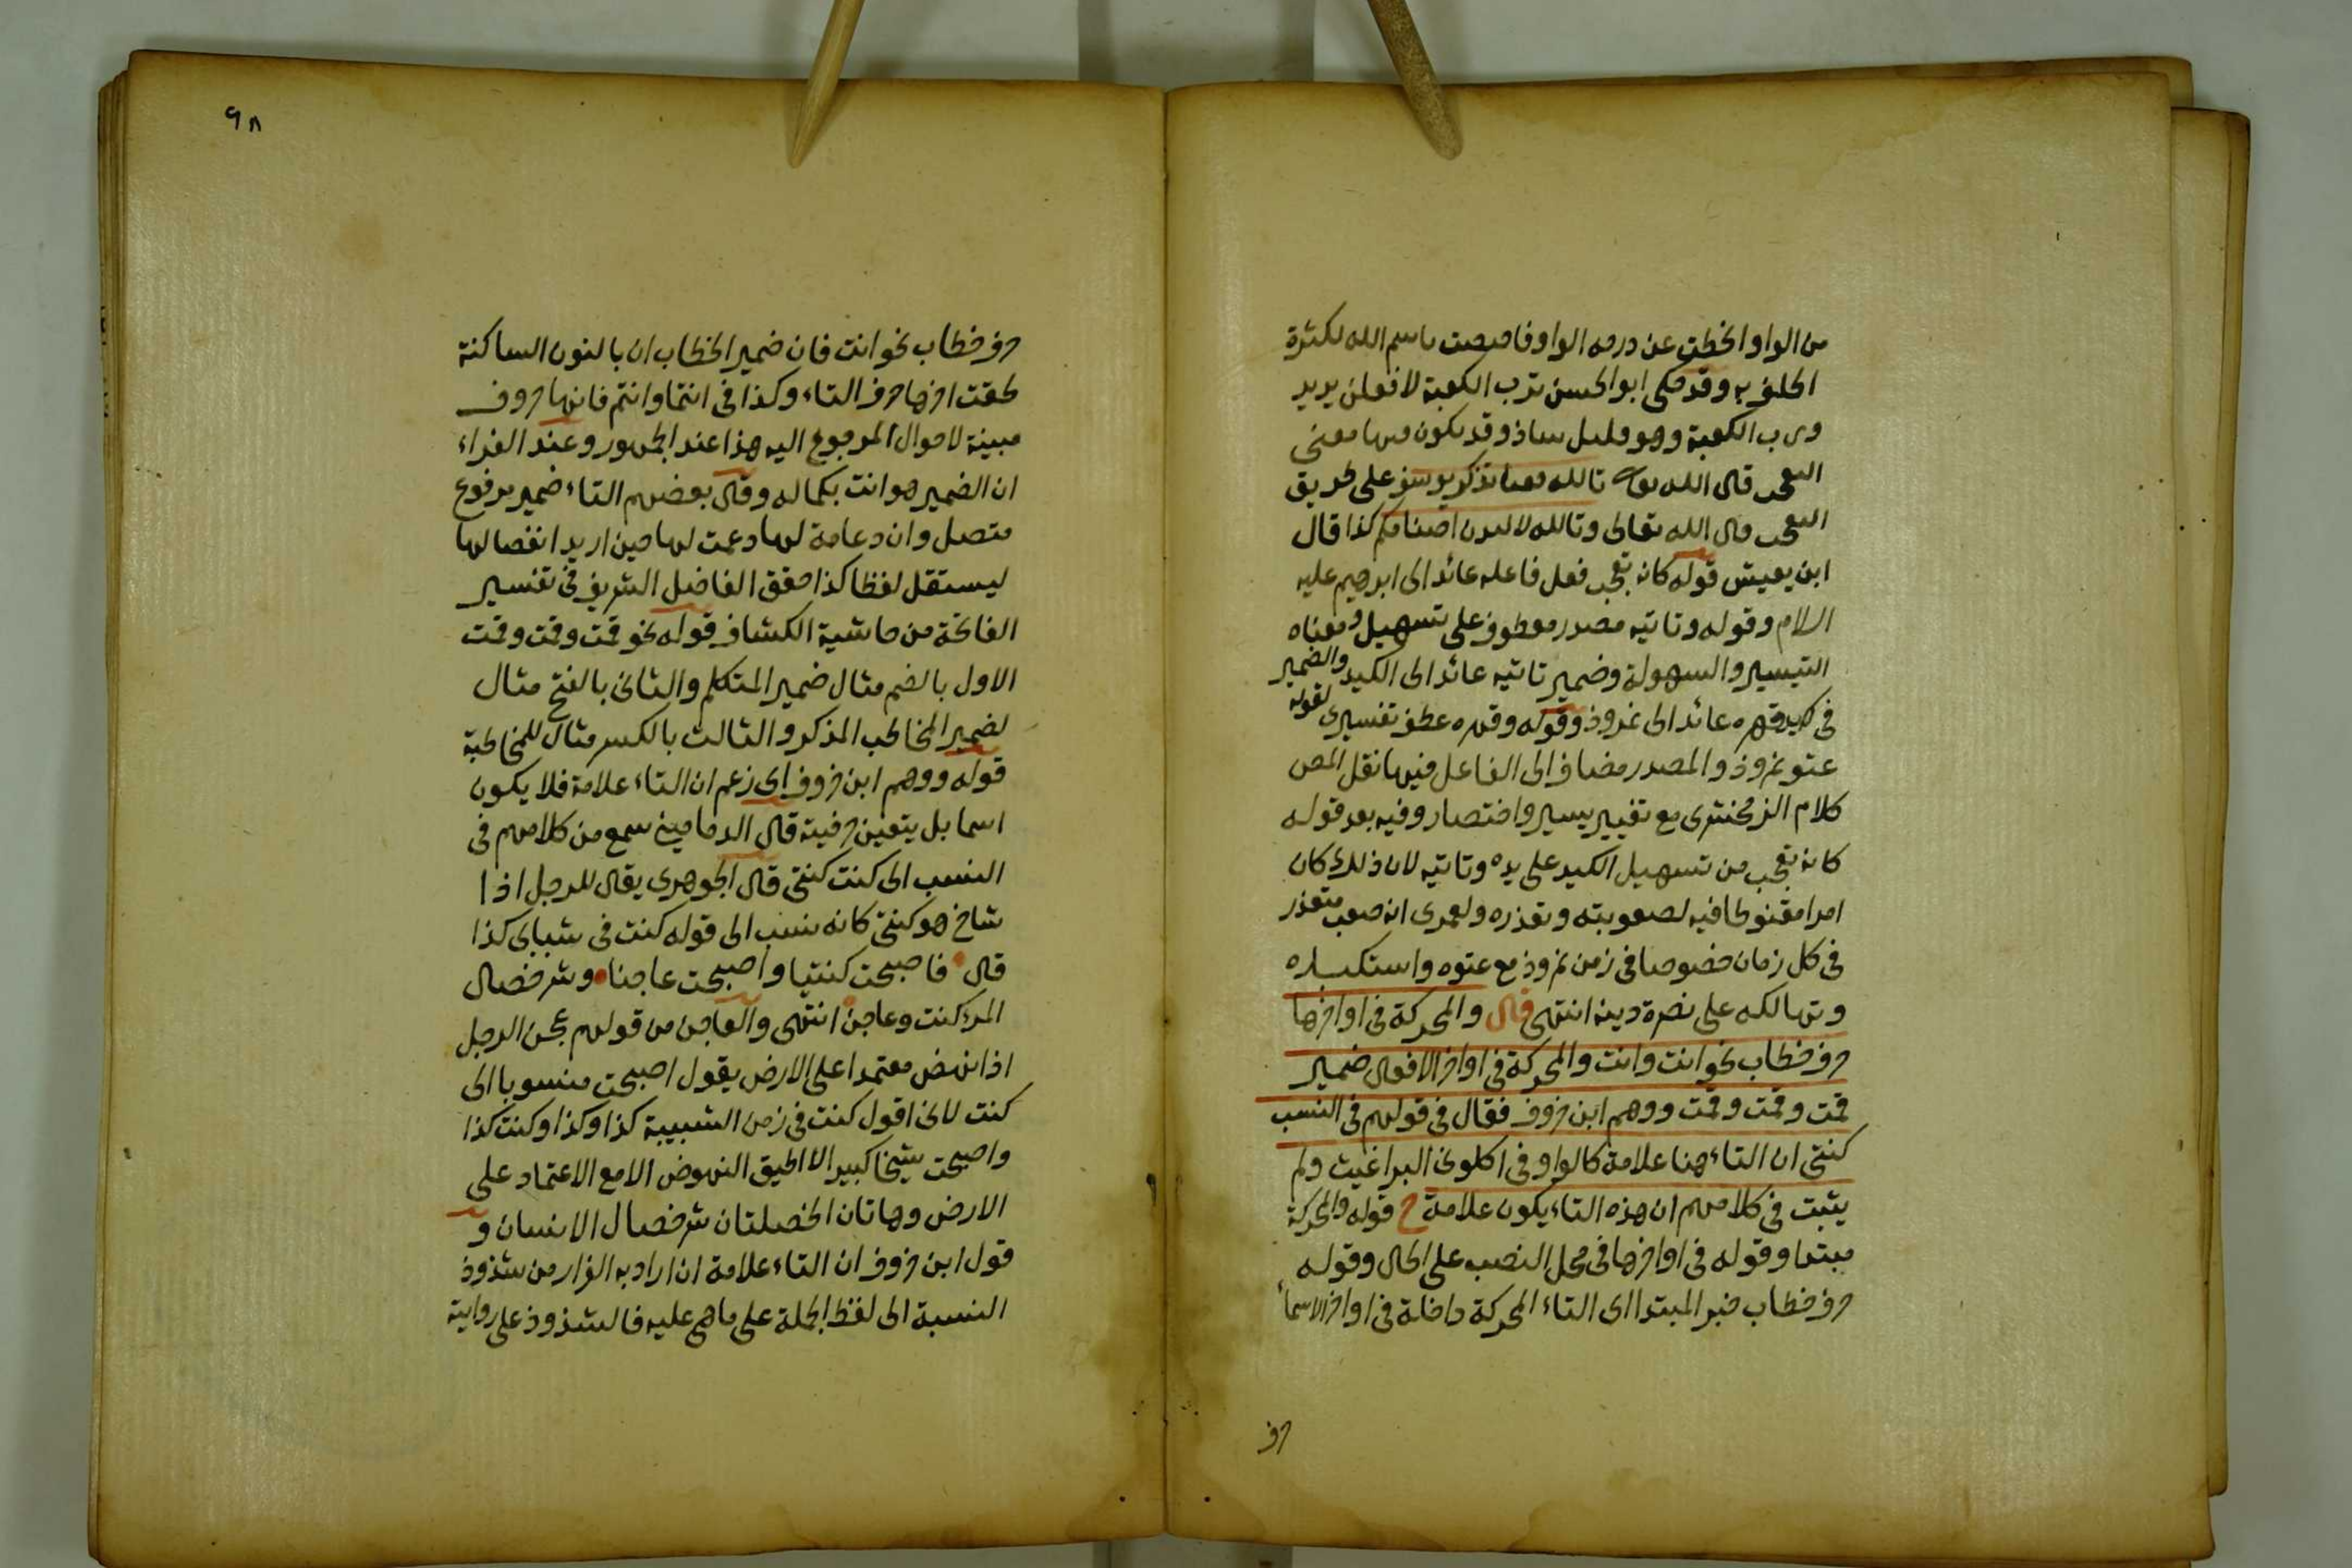 من الواو انحطت عن درجه الواو فاختصت باسم الله لكثرة
الحلف به وقد حكى ابو الحسن ترب الكعبة لافعلن يريد
ورب الكعبة وهو قليل شاذ وقد يكون فيها معنى
التعجب قال الله تعالى تالله تفتا تذكر يوسف على طريق
التعجب قال الله تعالى وتالله لاكيدن اصنامكم كذا قال
ابن يعيش قوله كانه تعجب فعل فاعله عائد الى ابرهيم عليه
السلام وقوله وتاتيه مصدر معطوف على تسهيل ومعناه
التيسير والسهولة وضمير تاتيه عائد الى الكيد والضمير
في كيد وقهره عائد الى نمروذ وقوله وقهره عطف تفسيرى لقوله
عتو نمروذ والمصدر مضاف الى الفاعل فيها نقل المص
كلام الزمخشرى مع تغيير يسير واختصار وفيه بعد قوله
كانه تعجب من تسهيل الكيد على يده وتاتيه لان ذلك كان
امرا مقنوطا فيه لصعوبته وتعذره ولعمرى انه صعب متعذر
في كل زمان خصوصا في زمن نمروذ مع عتوه واستكباره
وتهالكه على نصرة دينه انتهى قال والمحركة في اواخرها
حرف خطاب نحو انت وانت والمحركة في اواخر الافعال ضمير
قمت وقمت وقمت ووهم ابن خروف فقال في قولهم في النسب
كنتى ان التاء هنا علامة كالواو في اكلونى البراغيث ولم
يثبت في كلامهم ان هذه التاء يكون علامة ح قوله والمحركة
مبتدا وقوله في اواخرها في محل النصب على الحال وقوله
حرف خطاب خبر المبتدا اى التاء المحركة داخلة في اواخر الاسماء
حرف
٩٨
حرف خطاب نحو انت فان ضمير الخطاب ان بالنون الساكنة
لحقت اخرها حرف التاء وكذا في انتما وانتم فانها حروف
مبينة لاحوال المرجوع اليه هذا عند الجمهور وعند الفراء
ان الضمير هو انت بكماله وقال بعضهم التاء ضمير مرفوع
متصل وان دعامة لها دعمت لها حين اريد انفصالها
ليستقل لفظا كذا حقق الفاضل الشريف في تفسير
الفاتحة من حاشية الكشاف قوله نحو قمت وقمت وقمت
الاول بالضم مثال ضمير المتكلم والثانى بالفتح مثال
لضمير المخاطب المذكر والثالث بالكسر مثال للمخاطبة
قوله ووهم ابن خروف اى زعم ان التاء علامة فلا يكون
اسما بل يتعين حرفيته قال الدمامينى سمع من كلامهم في
النسب الى كنت كنتى قال الجوهرى يقال للرجل اذا
شاخ هو كنتى كانه نسب الى قوله كنت في شبابى كذا
قال فاصبحت كنتيا واصبحت عاجنا وشر خصال
المرء كنت وعاجن انتهى والعاجن من قولهم عجن الرجل
اذا نهض معتمدا على الارض يقول اصبحت منسوبا الى
كنت لانى اقول كنت في زمن الشبيبة كذا وكذا وكنت كذا
واصبحت شيخا كبيرا لا اطيق النهوض الا مع الاعتماد على
الارض وهاتان الخصلتان شر خصال الانسان و
قول ابن خروف ان التاء علامة ان اراد به الفرار من شذوذ
النسبة الى لفظ الجملة على ما هى عليه فالشذوذ على روايته